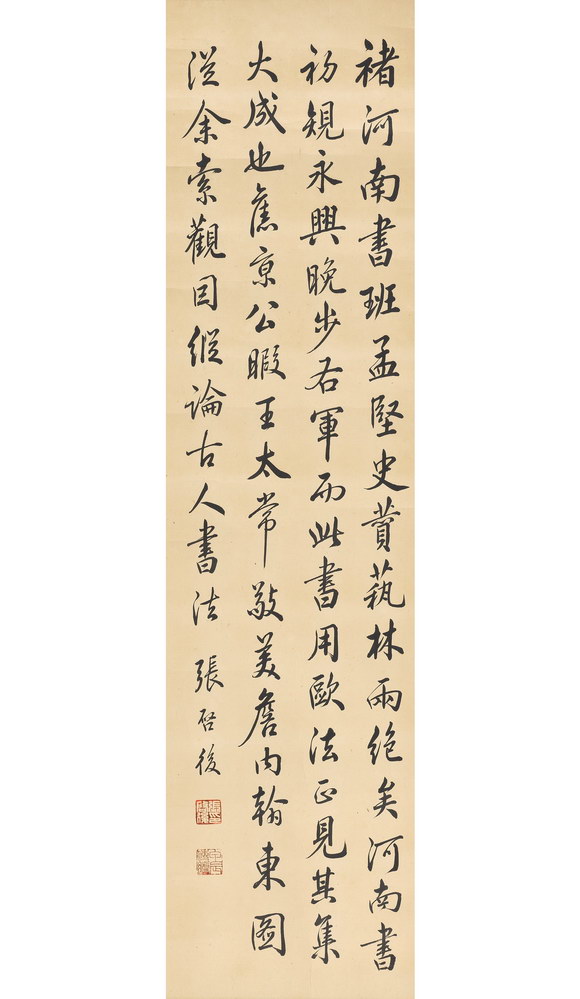 褚河南書班孟堅史贊藝林兩絕矣河南書
初規永興晚步右軍而此書用歐法正見其集
大成也舊京公暇王太常敬美詹內翰東圖
從余索觀因縱論古人書法
張啓後